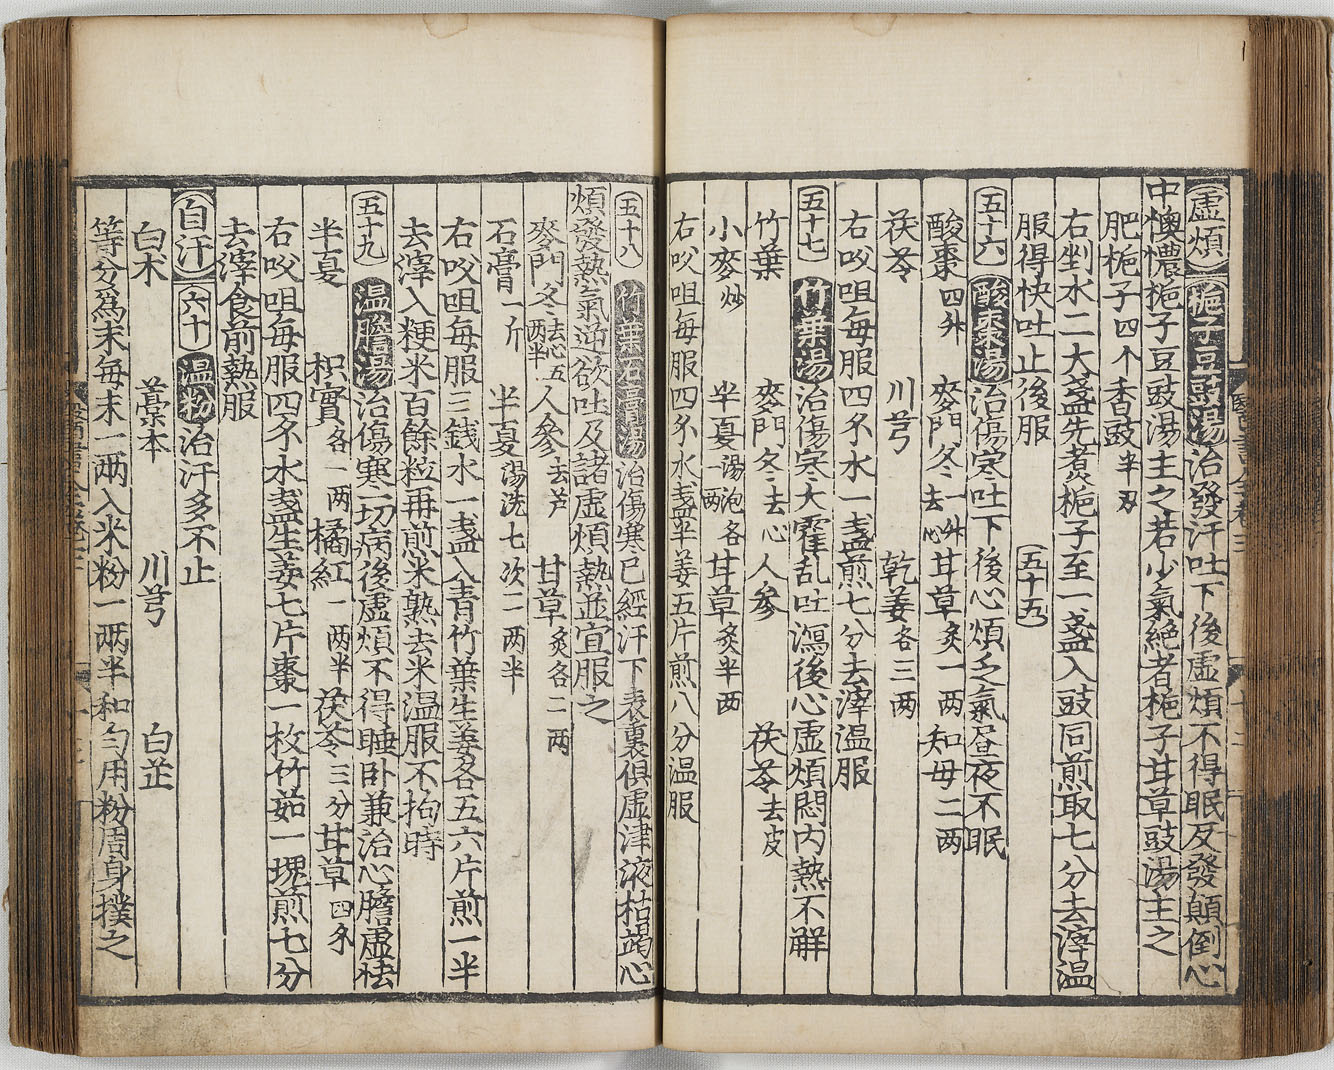 虛煩 梔子豆豉湯 治發汗吐下後虛煩不得眠反發顛倒心
中懊憹梔子豆豉湯主之若少氣絶者梔子甘草豉湯主之
肥梔子四个 香豉半刄
右剉水二大盞先煮梔子至一盞入豉同煎取七分去滓温
服得快吐止後服 五十五
五十六 酸棗湯 治傷寒吐下後心煩乏氣昼夜不眠
酸棗四升 麥門冬一升去心 甘草炙一两 知母二两
茯苓 川芎 乾姜各三两
右㕮咀每服四爻水一盞煎七分去滓温服
五十七 竹葉湯 治傷寒大霍乱吐瀉後心虛煩悶内熱不解
竹葉 麥門冬去心 人參 茯苓去皮
小麥炒 半夏湯泡一两 各 甘草炙半两
右㕮咀每服四爻水盞半姜五片煎八分温服
五十八 竹葉石膏湯 治傷寒已經汗下表裏俱虛津液枯竭心
煩發熱氣逆欲吐及諸虛煩熱並宜服之
麥門冬去心五两半 人參去芦 甘草炙各二两
石膏一斤 半夏湯洗七次二两半
右㕮咀每服三銭水一盞入青竹葉生姜各五六片煎一半
去滓入粳米百餘粒再煎米熟去米温服不拘時
五十九 温膽湯 治傷寒一切病後虛煩不得睡卧兼治心膽虛怯
半夏 枳實各一两 橘紅一两半 茯苓三分 甘草四爻
右㕮咀每服四爻水盞生姜七片棗一枚竹茹一塊煎七分
去滓食前熱服
自汗 六十 温粉 治汗多不止
白术 藁本 川芎 白芷
等分為末每末一两入米粉一两半和匀用粉周身撲之